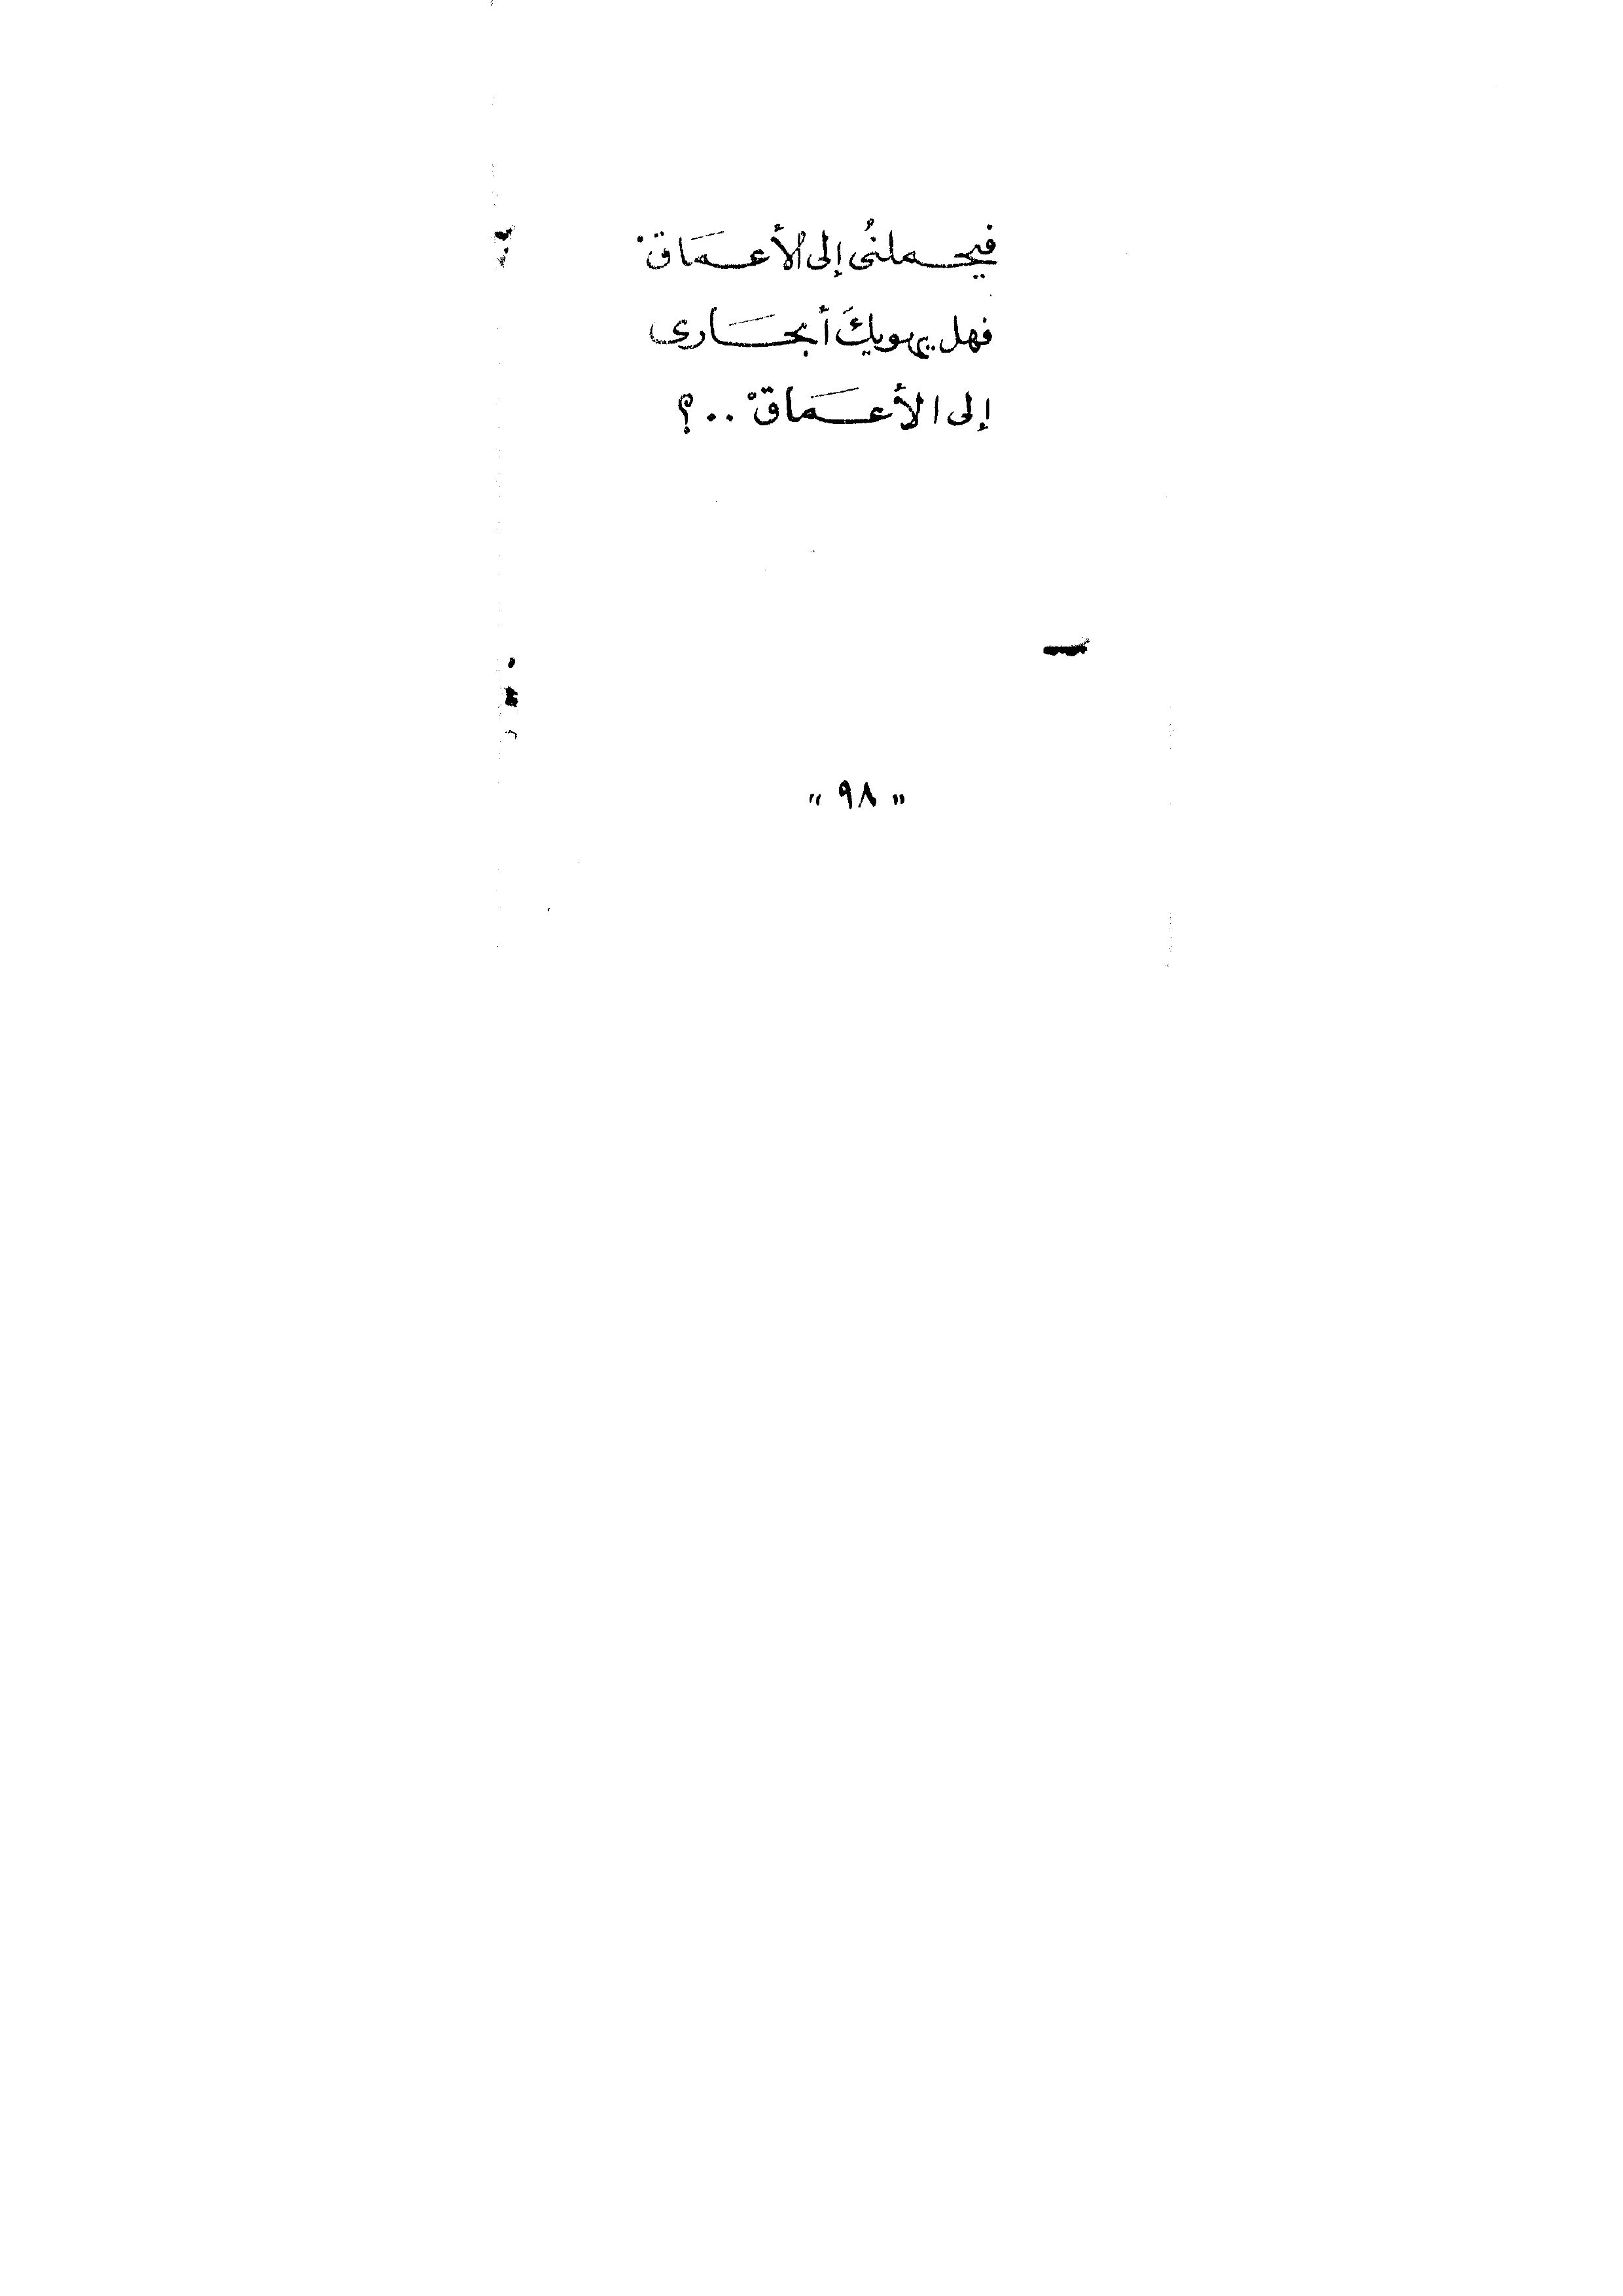 فيحملنى إلى الأعمَاق
فهل يهويكَ أبحَارى
إلى الأعمَاقْ ..؟
" ٩٨ "